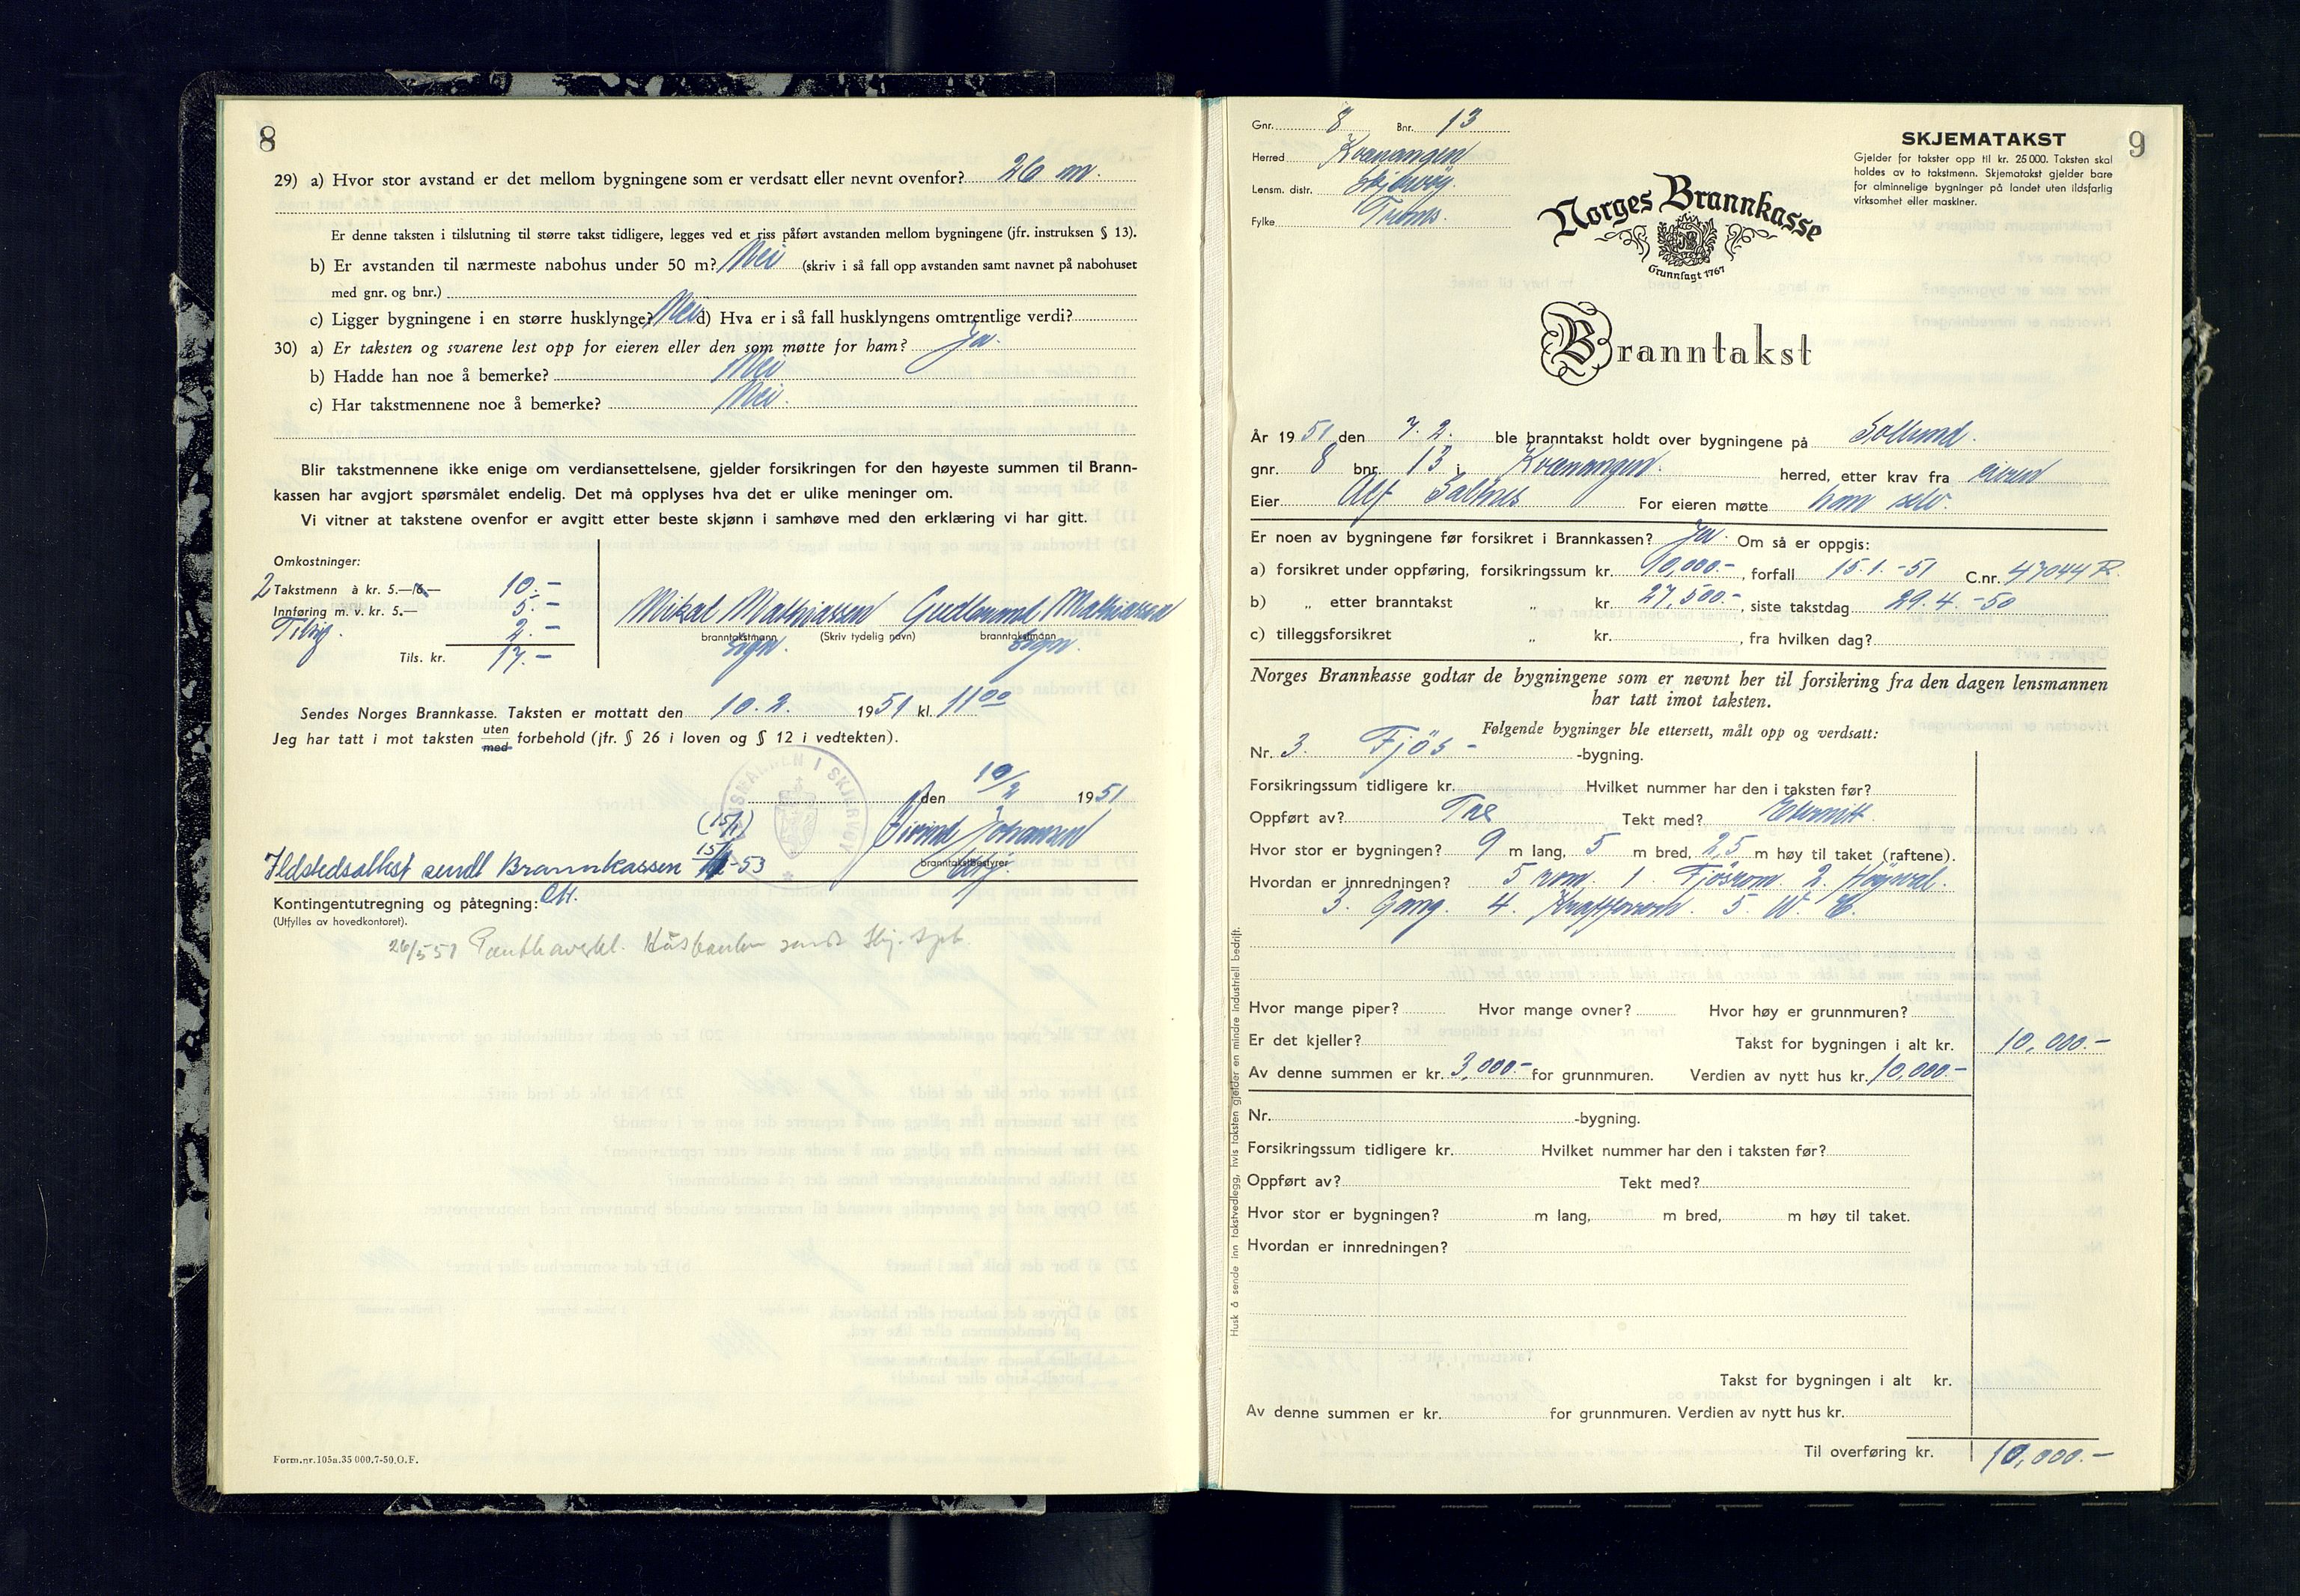 8
29) a) Hvor stor avstand er det mellom bygningene som er verdsatt eller nevnt ovenfor? 26 m.
Er denne taksten i tilslutning til større takst tidligere, legges ved et riss påført avstanden mellom bygningene (jfr. instruksen § 13).
b) Er avstanden til nærmeste nabohus under 50 m? Nei (skriv i så fall opp avstanden samt navnet på nabohuset
med gnr. og bnr.)
c) Ligger bygningene i en større husklynge? Nei d) Hva er i så fall husklyngens omtrentlige verdi?
30) a) Er taksten og svarene lest opp for eieren eller den som møtte for ham? Ja.
b) Hadde han noe å bemerke? Nei
c) Har takstmennene noe å bemerke? Nei.
Blir takstmennene ikke enige om verdiansettelsene, gjelder forsikringen for den høyeste summen til Brann-
kassen har avgjort spørsmålet endelig. Det må opplyses hva det er ulike meninger om.
Vi vitner at takstene ovenfor er avgitt etter beste skjønn i samhøve med den erklæring vi har gitt.
Omkostninger:
2 Takstmenn à kr. 5.— 10.-
Innføring m. v. kr. 5.— 5.-
2.-
Tils. kr. 17.-
Mikal Mathiassen Gudmund Mathiassen
branntakstmann (Skriv tydelig navn) branntakstmann
sign. sign.
Sendes Norges Brannkasse. Taksten er mottatt den 10. 2. 1951 kl. 11 00
Jeg har tatt i mot taksten uten med forbehold (jfr. § 26 i loven og § 12 i vedtekten).
LENSMANNEN I SKJERVØY
den 10/2 1951
(15/1) Eivind Johansen
branntakstbestyrer
Ildstedsattest sendt Brannkassen 15/1-53
Kontingentutregning og påtegning:
(Utfylles av hovedkontoret).
26/5 51 Panthaverkl. Husbanken sendt
Form.nr.105a.35 000.7-50.O.F.
Gnr. 8 Bnr. 13
Herred Kvænangen
Lensm. distr. Skjervøy.
Fylke Troms.
SKJEMATAKST 9
Gjelder for takster opp til kr. 25 000. Taksten skal
holdes av to takstmenn. Skjematakst gjelder bare
for alminnelige bygninger på landet uten ildsfarlig
virksomhet eller maskiner.
Norges Brannkasse
Grunnlagt 1767
Branntakst
År 1951 den 7. 2. ble branntakst holdt over bygningene på Solbund.
gnr. 8 bnr. 13 i Kvænangen. herred, etter krav fra eieren
Eier Alf Salnes For eieren møtte han selv.
Er noen av bygningene før forsikret i Brannkassen? Ja. Om så er oppgis:
a) forsikret under oppføring, forsikringssum kr. 10,000.-, forfall 15.1.-51 C.nr. 47044 R.
b) „ etter branntakst „ kr. 27,500.-, siste takstdag 29.4.-50
c) tilleggsforsikret „ kr. , fra hvilken dag?
Norges Brannkasse godtar de bygningene som er nevnt her til forsikring fra den dagen lensmannen
har tatt imot taksten.
Følgende bygninger ble ettersett, målt opp og verdsatt:
Nr. 3. Fjös- -bygning.
Forsikringssum tidligere kr. Hvilket nummer har den i taksten før?
Oppført av? Tre Tekt med? Eternitt.
Hvor stor er bygningen? 9 m lang, 5 m bred, 2,5 m høy til taket (raftene).
Hvordan er innredningen? 5 rom. 1. Fjösrom. 2. Höyseval.
3. Gang. 4. Kraftforrom. 5. W. C.
Hvor mange piper? Hvor mange ovner? Hvor høy er grunnmuren?
Er det kjeller? Takst for bygningen i alt kr. 10,000.-
Av denne summen er kr. 3,000.- for grunnmuren. Verdien av nytt hus kr. 10,000.-
Nr. -bygning.
Forsikringssum tidligere kr. Hvilket nummer har den i taksten før?
Oppført av? Tekt med?
Hvor stor er bygningen? m lang, m bred, m høy til taket.
Hvordan er innredningen?
Takst for bygningen i alt kr.
Av denne summen er kr. for grunnmuren. Verdien av nytt hus kr.
Til overføring kr. 10,000.-
Husk å sende inn takstvedlegg, hvis taksten gjelder en mindre industriell bedrift.